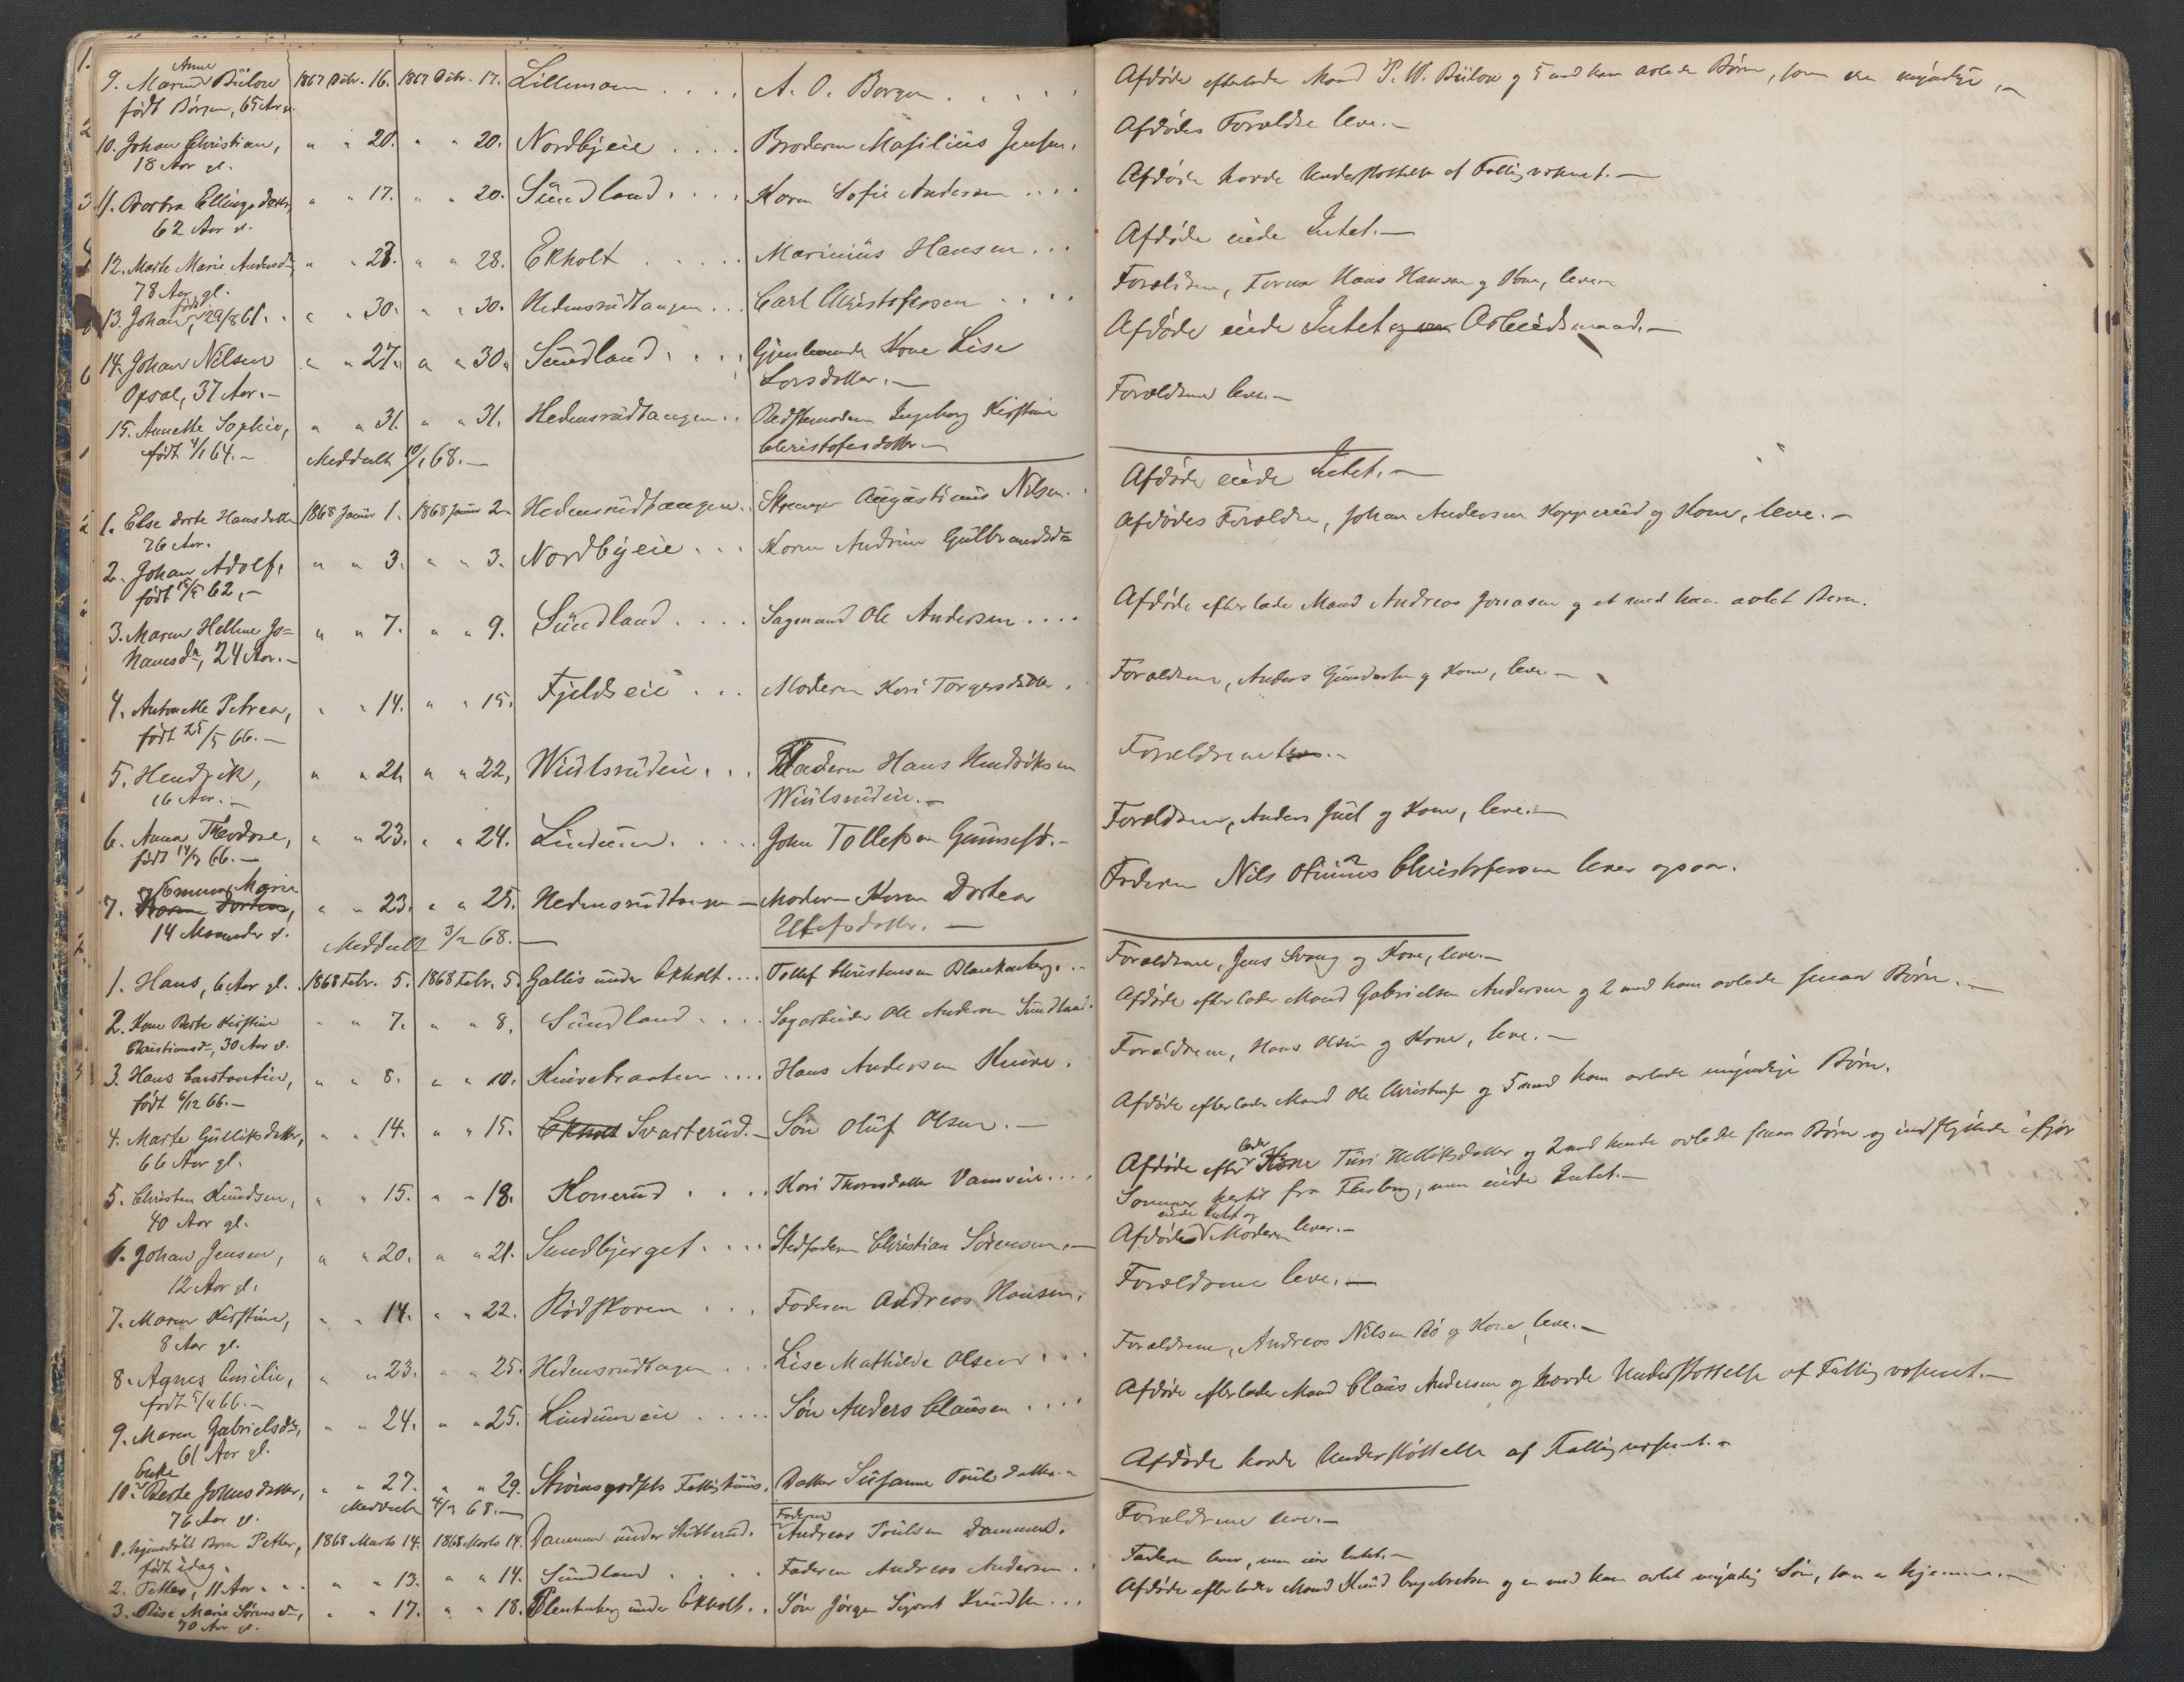 Anne
9. Maria Bülow 1867 Debr. 16. 1867 Debr. 17. Lillemoen .... A. O. Borgen ..... Afdøde efterlader Mand P. W. Bülow og 5 med ham avlede Børn, som ere myndige,
født Borgen, 65 Aar
10. Johan Christian, " " 20. " " 20. Nordbyeie .... Broderen Jensen. Afdødes Forældre leve.-
18 Aar gl.
11. Barbra Ellingsdatter " " 17. " " 20. Sundland .... Karen Sofie Andersen .... Afdøde havde Understøttelse af Fattigvæsenet.-
62 Aar gl.
12. Marte Marie Andersd. " " 23. " " 28. Ekholt ..... Marinius Hansen ... Afdøde eiede Intet.-
78 Aar gl.
13. Johan, født 29/8 61. " " 30. " " 30. Hedensrudtangen ... Carl Christofersen .... Forældrene, Hans Hansen og Kone, lever
14. Johan Nilsen " " 27. " " 30. Sundland .... Gjenlevende Kone Lise Afdøde eiede Intet og var Arbeidsmand.-
Opsal, 37 Aar.- Larsdatter.-
15. Annette Sophie, " " 31. " " 31. Hedensrudtangen .. Bedstemoderen Ingeborg Kirstine Forældrene leve.-
født 4/1 64.- Meddeelt 10/1 68.- Christofersdatter.-
1. Else Dorte Hansdatter 1868 Januar 1. 1868 Januar 2. Hedensrudtangen. Augustinus Nilsen. Afdøde eiede Intet.-
76 Aar.
2. Johan Adolf, " " 3. " " 3. Nordbyeie ... Karen Andrine Gulbrandsd. Afdødes Forældre, Johan Andersen Kopperud og Kone, leve.-
født 62,-
3. Maren Helline Jo= " " 7. " " 9. Sundland .... Sagmand Ole Andersen .... Afdøde efterlader Mand Andreas Jonasen og et med ham avlet Barn.
hanesdr, 24 Aar.-
4. Antonette Petrea, " " 14. " " 15. Fjeldseie ... Moderen Kari Torgersdatter. Forældrene, Anders Gundersen og Kone, leve.-
født 25/5 66.-
5. Hendrik, " " 21. " " 22, Wiulsrudeie ... Faderen Hans Hendriksen Forældrene leve.-
16 Aar.- Wiulsrudeie.-
6. Anna Theodore, " " 23. " " 24. Lindum ..... John Tollefsen Forældrene, Anders Juel og Kone, leve.-
født 66.-
Emma Marie
7. Karen Dortea, " " 23. " " 25. Hedensrudtangen - Moderen Karen Dortea Faderen Nils Christofersen lever ogsaa.
14 Maaneder gl. Meddeelt 3/2 68.- datter.-
1. Hans, 6 Aar gl. 1868 Febr. 5. 1868 Febr. 5. Gallis under Ekholt .... Tollef Christensen Blankenberg .. Forældrene, Jens Svang og Kone, leve.-
2. Kone Berte Kirstine " " 7. " " 8. Sundland .... Sagarbeider Ole Andersen Sundland. Afdøde efterlader Mand Gabrielsen Andersen og 2 med ham avlede smaa Børn.-
Christiansd., 30 Aar gl.
3. Hans Constantin, " " 8. " " 10. Knivebraaten .... Hans Andersen Knive. Forældrene, Hans Olsen og Kone, leve.-
født 6/12 66.-
4. Marte Gulliksdatter, " " 14. " " 15. Ekholt Svarterud.- Søn Oluf Olsen.- Afdøde efterlader Mand Ole Christensen og 5 med ham avlede myndige Børn.
66 Aar gl.
5. Christen Knudsen, " " 15. " " 18. Konerud .... Kari Thorsdatter .... Afdøde efterlader Kone Turi Helliksdatter og 2 med hende avlede smaa Børn og indflyttede ifjor
40 Aar gl. Sommer hertil fra Flesberg, men eiede Intet.-
6. Johan Jensen, " " 20. " " 21. Sundbjerget .... Stedfaderen Christian Sørensen.- Afdøde eiede Intet og Moderen lever.-
12 Aar gl.
7. Maren Kirstine, " " 14. " " 22. Rødskoven ... Faderen Andreas Hansen. Forældrene leve.-
8 Aar gl.
8. Agnes Emilie, " " 23. " " 25. Hedensrudtagen ... Lise Mathilde Olsen ... Forældrene, Andreas Nilsen Bø og Kone, leve.-
født 66.-
9. Maren Gabrielsdr, " " 24. " " 25. Lindumeie ..... Søn Anders Clausen .... Afdøde efterlader Mand Claus Andersen og havde Understøttelse af Fattigvæsenet.-
61 Aar gl.
Enke
10. Berte Johnsdatter, " " 27. " " 29. Strømsgodsets Fattighuus. Datter Susanne Pouls datter.- Afdøde havde Understøttelse af Fattigvæsenet.-
76 Aar gl. Meddeelt 4/3 68.-
1. hjemedøbt Barn Petter, 1868 Marts 14. 1868 Marts 14. Dammen under Faderen Andreas Poulsen Dammen. Forældrene leve.-
født idag.
2. Petter, 11 Aar... " " 13. " " 14. Sundland .... Faderen Andreas Andersen . Faderen lever, men eier Intet.-
3. Lise Marie Sørensdr, " " 17. " " 18. Blenkenberg under Ekholt .. Søn Jørgen Knudsen ... Afdøde efterlader Mand Knud Engebretsen og en med ham avlet myndig Søn, som er hjemme.-
70 Aar gl.